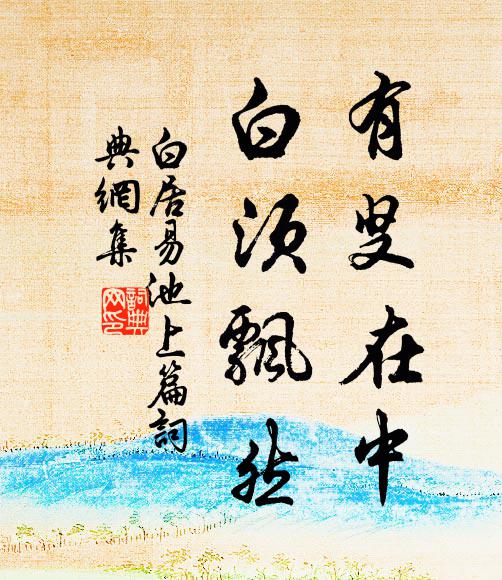 有叟在中
白须飘然
白居易池上篇詞
典網集
詞典
网印